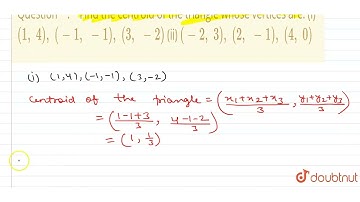 Question : Find the centroid of the triangle whose vertices are: (i)
(1, 4), (-1, -1), (3, -2) (ii) (-2, 3), (2, -1), (4, 0)
(i) (1,4), (-1,-1), (3,-2)
Centroid of the triangle = (x₁+x₂+x₃/3, y₁+y₂+y₃/3)
= (1-1+3/3, 4-1-2/3)
= (1, 1/3)
doubtnut